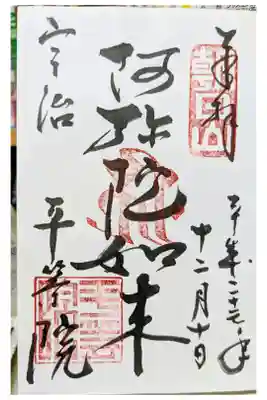 奉拝
平成二十七年
十二月十日
阿弥陀如来
宇治
平等院